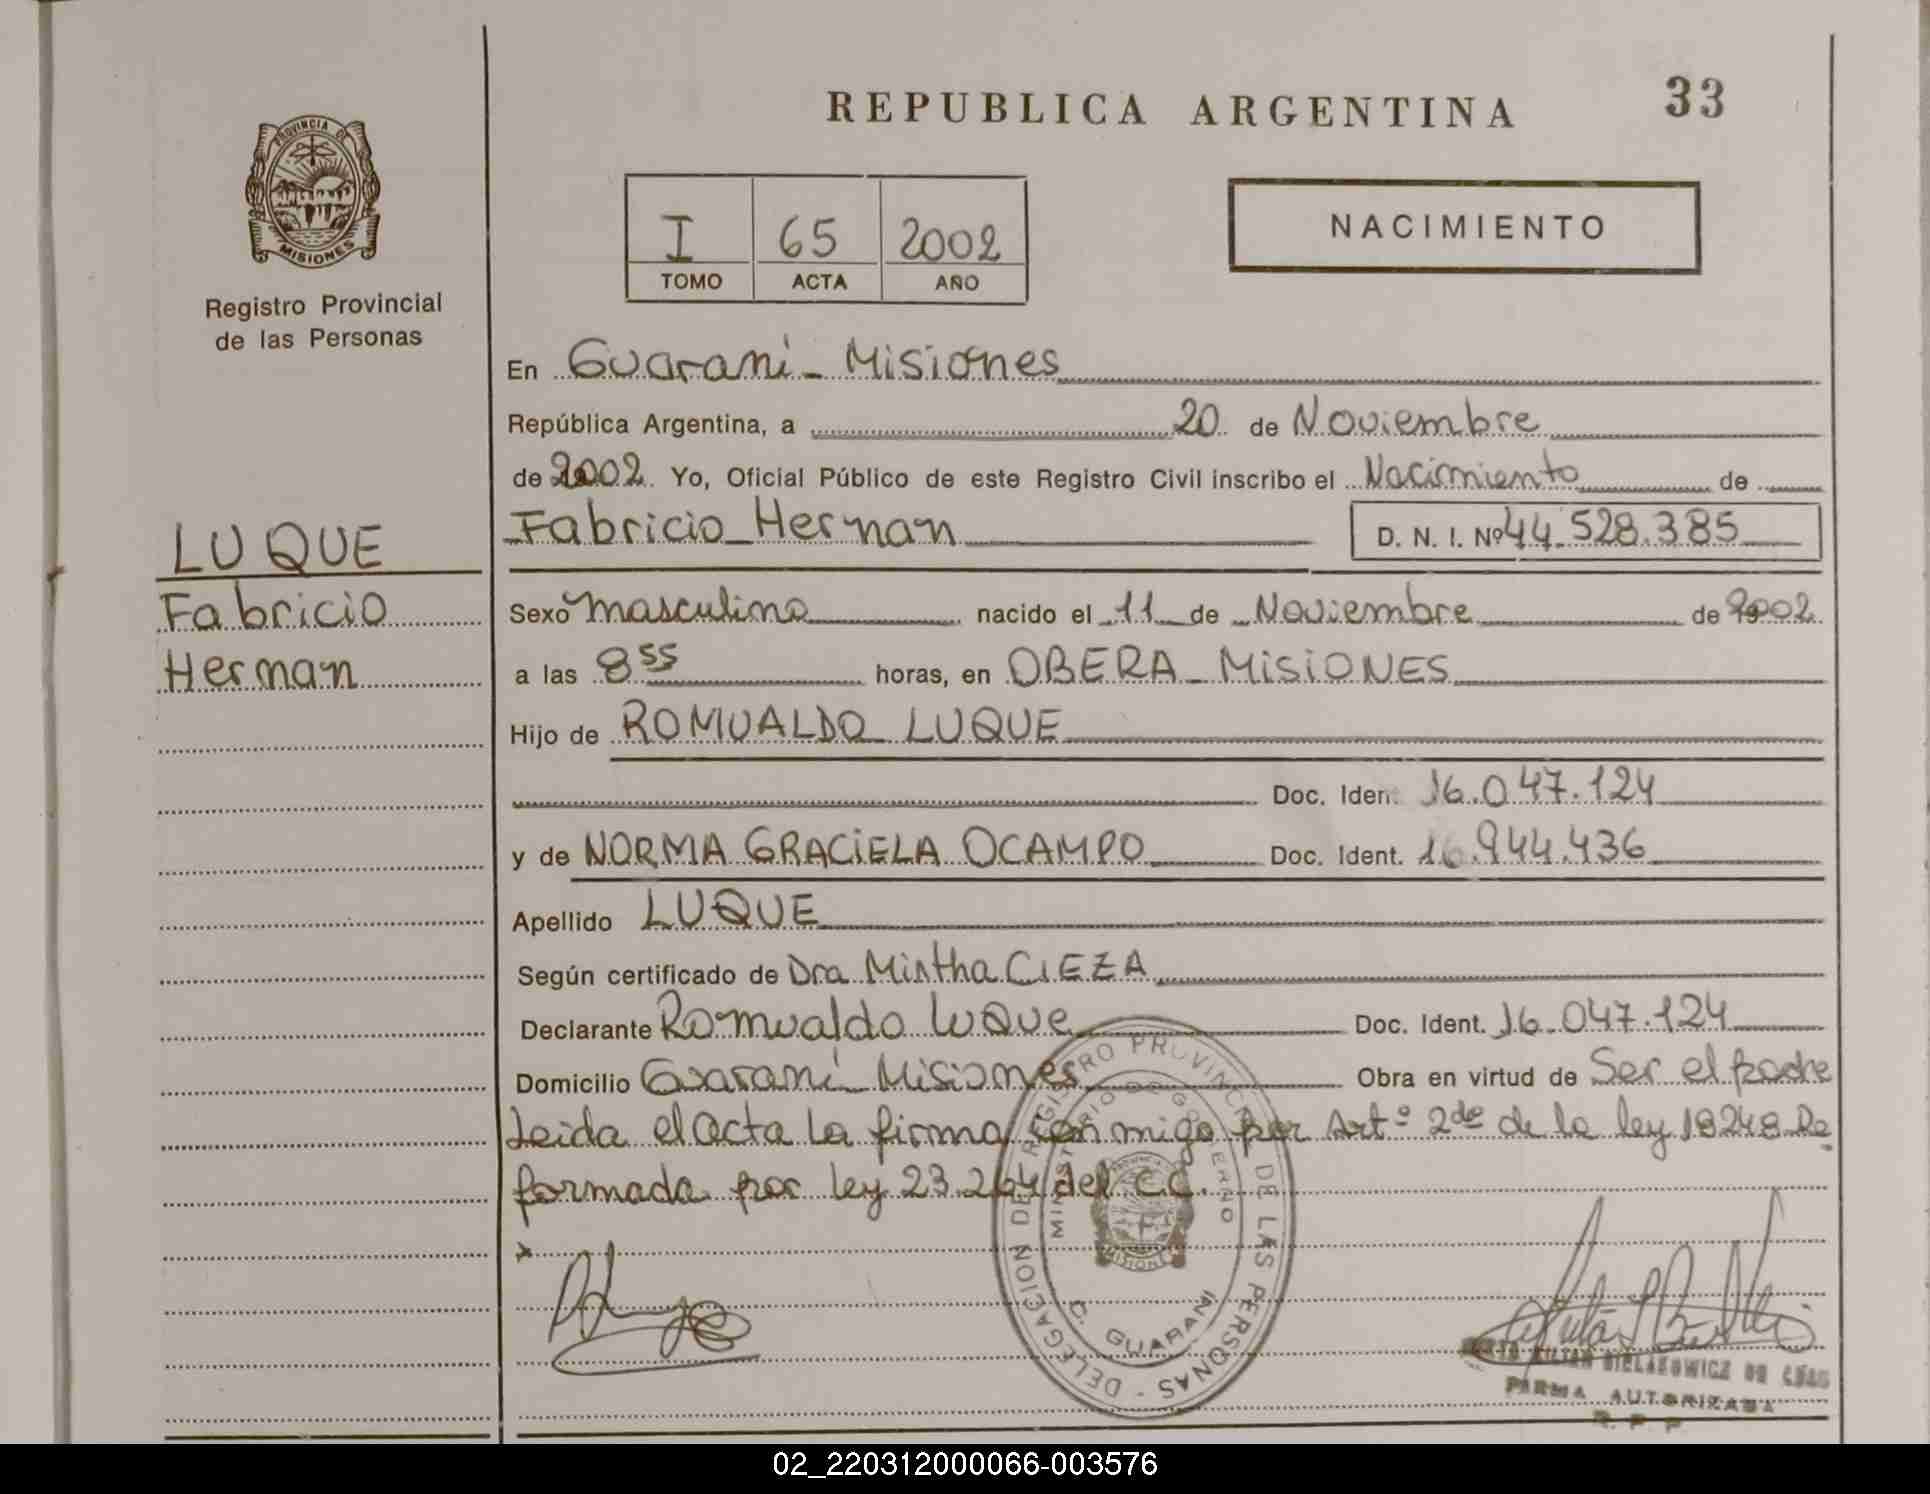 REPUBLICA ARGENTINA
33
PROVINCIA DE
MISIONES
Registro Provincial
de las Personas
I 65 2002
TOMO ACTA AÑO
NACIMIENTO
En Guaraní - Misiones
República Argentina, a 20 de Noviembre
de 2002. Yo, Oficial Público de este Registro Civil inscribo el Nacimiento de
Fabricio Hernan D. N. I. Nº 44.528.385
LUQUE
Fabricio
Hernan
Sexo masculino nacido el 11 de Noviembre de 2002
a las 8 55 horas, en OBERA - MISIONES
Hijo de ROMUALDO LUQUE
Doc. Iden. 16.047.124
y de NORMA GRACIELA OCAMPO Doc. Ident. 16.944.436
Apellido LUQUE
Según certificado de Dra Mirtha CIEZA
Declarante Romualdo Luque Doc. Ident. 16.047.124
Domicilio Guaraní - Misiones Obra en virtud de Ser el padre
Leida el acta La firma con migo por Artº 2do de la ley 18248 Re
formada por ley 23.264 del C.C.
DELEGACION DE REGISTRO PROVINCIAL DE LAS PERSONAS -
MINISTERIO DE GOBIERNO
C. GUARANI
BIELAKOWICZ DE
FIRMA AUTORIZADA
R. P. P.
02_220312000066-003576